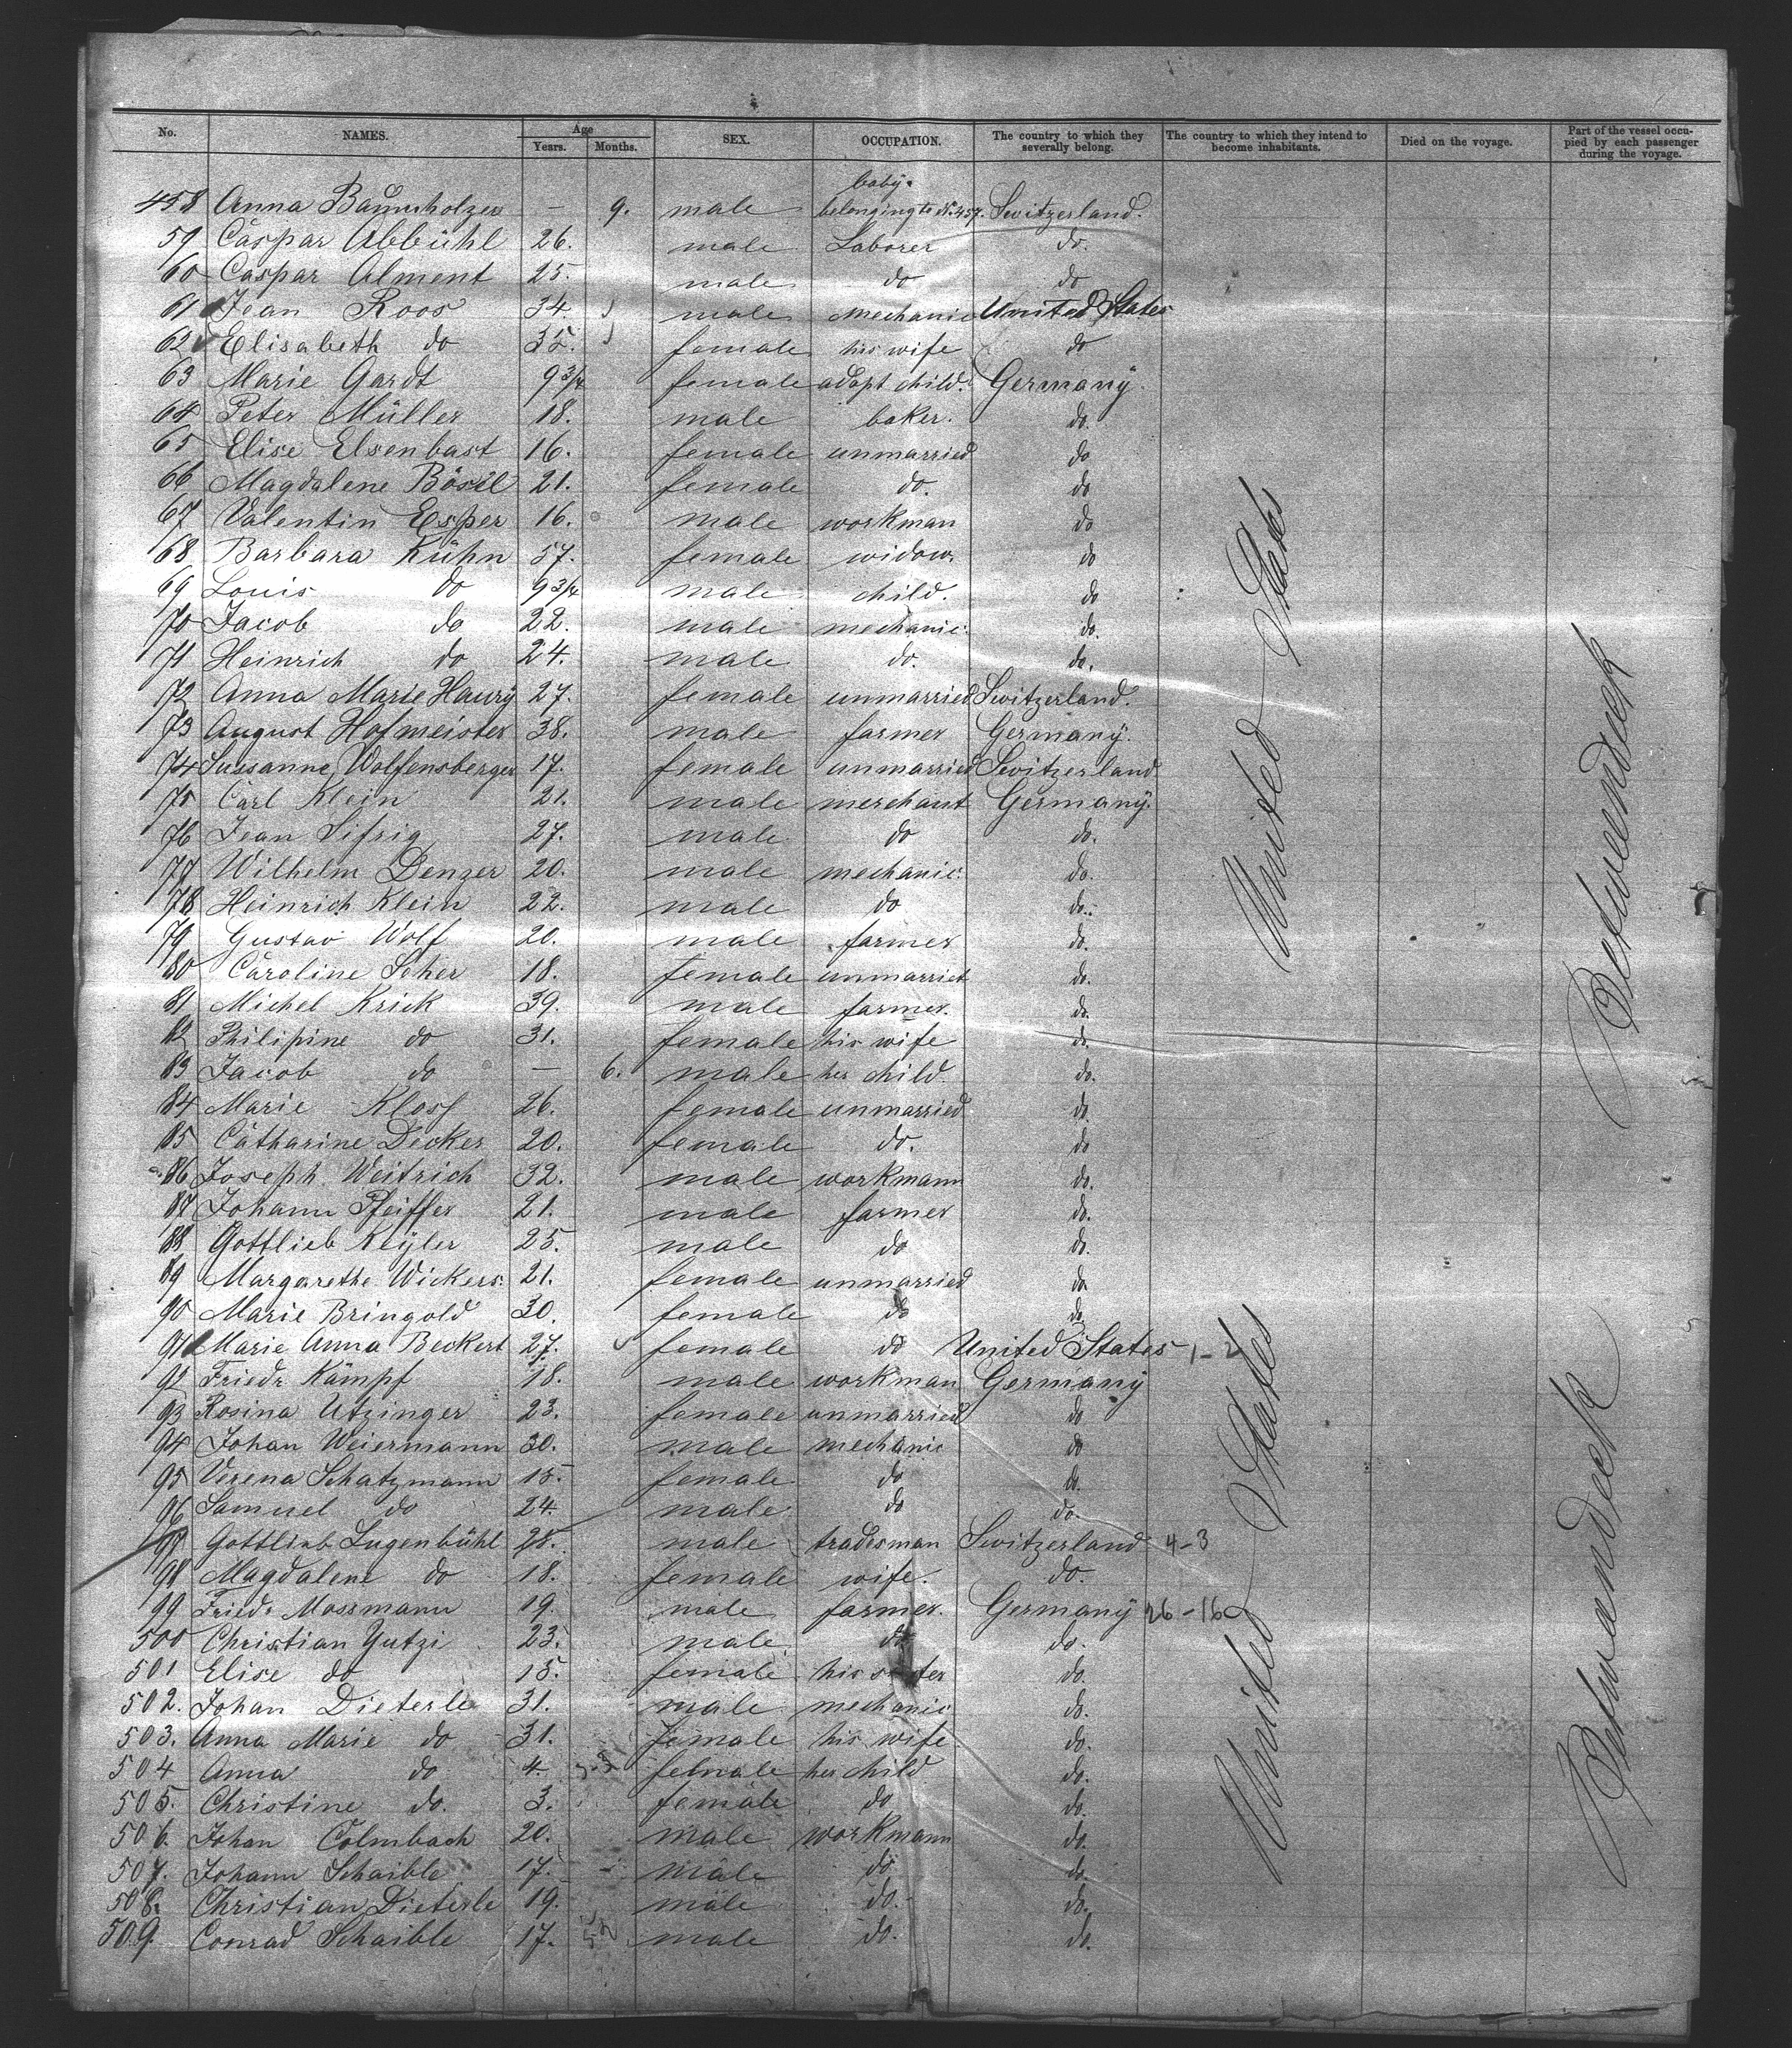 No. NAMES. Age Years. Months. SEX. OCCUPATION. The country to which they severally belong. The country to which they intend to become inhabitants. Died on the voyage. Part of the vessel occupied by each passenger during the voyage.
baby.
458 Anna Baumholzer — 9. male belonging to No. 457. Switzerland.
59 Caspar Abbühl 26. male Laborer do.
60 Caspar Alment 25. male do do
61 Jean Roos 34. male mechanic United States
62 Elisabeth do 35. female his wife do
63 Marie Gardt 9 3/4 female adopt child. Germany.
64 Peter Müller 18. male baker. do.
65 Elise Elsenbast 16. female unmarried do
66 Magdalene Bösil 21. female do. do
67 Valentin Esper 16. male workman do
68 Barbara Kühn 57. female widow. do
69 Louis do 9 3/4 male child. do
70 Jacob do 22. male mechanic. do.
71 Heinrich do 24. male do. do.
72 Anna Marie Haury 27. female unmarried Switzerland.
73 August Hofmeister 38. male farmer Germany.
74 Sussanne Wolfensberger 17. female unmarried Switzerland
75 Carl Klein 21. male merchant Germany.
76 Jean Sifrig 27. male do do.
77 Wilhelm Denzer 20. male mechanic. do.
78 Heinrich Klein 22. male do do.
79 Gustav Wolf 20. male farmer do.
80 Caroline Scher 18. female unmarriet do.
81 Michel Krick 39. male farmer. do.
82 Philipine do 31. female his wife do.
83 Jacob do — 6. male her child. do.
84 Marie Klosf 26. female unmarried do.
85 Catharine Decker 20. female do. do
86 Joseph Weitrich 32. male workmann do.
87 Johann Pfeiffer 21. male farmer do.
88 Gottlieb Keyler 25. male do do.
89 Margarethe Wickers. 21. female unmarried do
90 Marie Bringold 30. female do do
91 Marie Anna Beckert 27. female do United States 1-2
92 Friedr Kämpf 18. male workman Germany
93 Rosina Utzinger 23. female unmarried do
94 Johan Weiermann 30. male mechanic do
95 Verena Schatzmann 15. female do do.
96 Samuel do 24. male do do.
97 Gottlieb Lugenbühl 28. male tradesman Switzerland 4-3
98 Magdalene do 18. female wife. do.
99 Friedr Mossmann 19. male farmer. Germany 26-16
500 Christian Yutzi 23. male do do.
501 Elise do 15. female his sister do.
502. Johan Dieterle 31. male mechanic do.
503. Anna Marie do 31. female his wife do.
504 Anna do 4. female her child do.
505. Christine do. 3. female do do.
506. Johan Colmbach 20. male workmann do.
507. Johann Schaible 17. male do do.
508. Christian Dieterle 19. male do. do.
509. Conrad Schaible 17. male do. do.
United States
Betweendeck
United States
Betweendeck